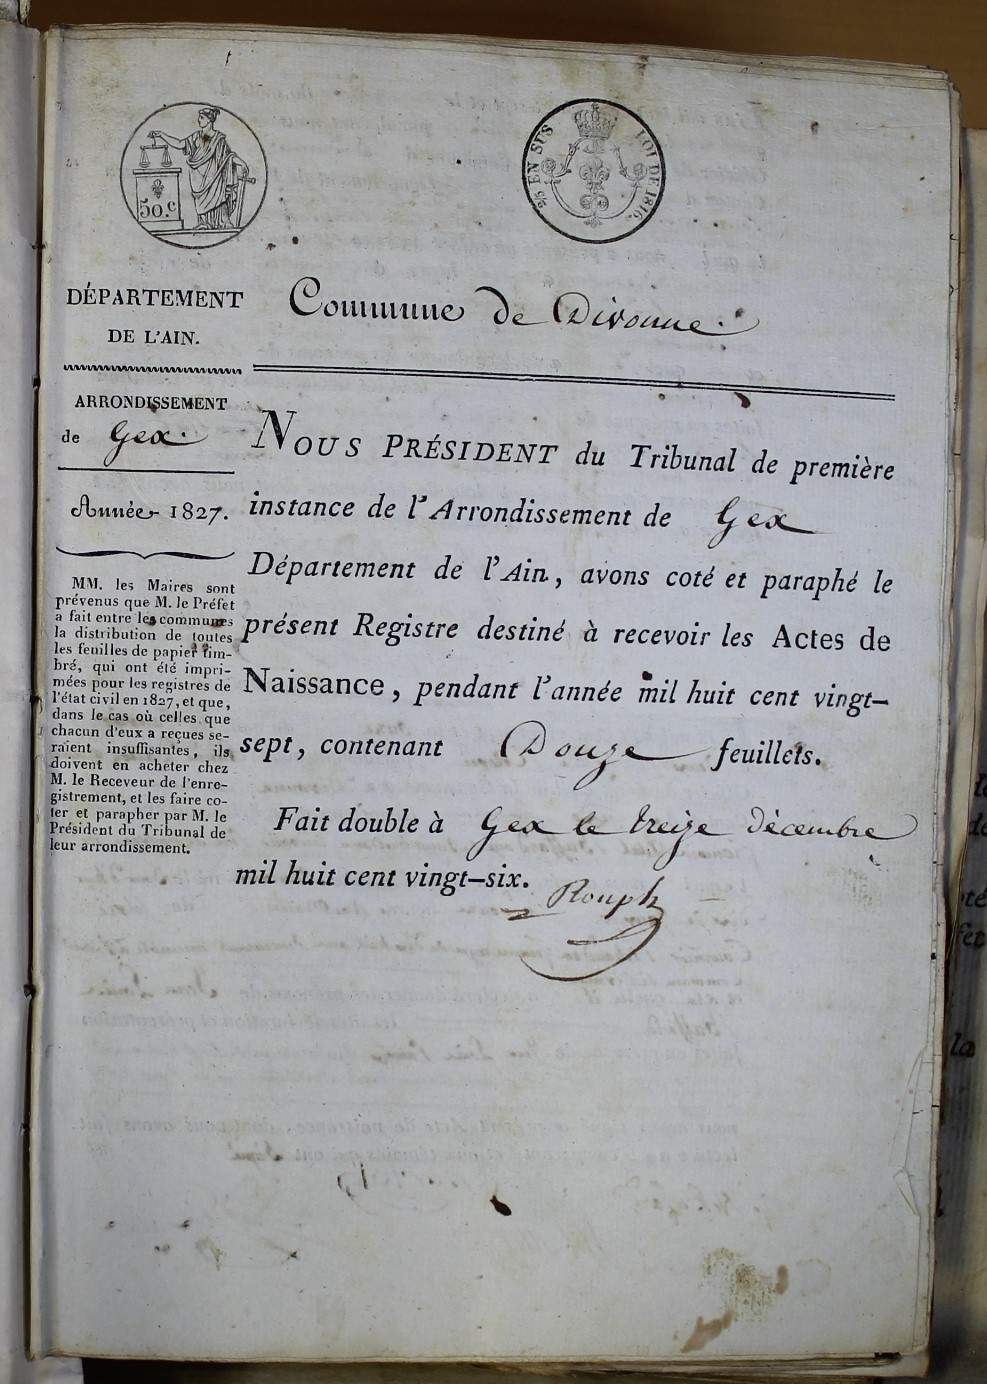 50.c
2/5 EN SUS
LOI DE 1816.
DÉPARTEMENT
DE L'AIN.
Commune de Divonne.
ARRONDISSEMENT
de Gex.
Année 1827.
MM. les Maires sont
prévenus que M. le Préfet
a fait entre les communes
la distribution de toutes
les feuilles de papier tim-
bré, qui ont été impri-
mées pour les registres de
l'état civil en 1827, et que,
dans le cas où celles que
chacun d'eux a reçues se-
raient insuffisantes, ils
doivent en acheter chez
M. le Receveur de l'enre-
gistrement, et les faire co-
ter et parapher par M. le
Président du Tribunal de
leur arrondissement.
NOUS PRÉSIDENT du Tribunal de première
instance de l'Arrondissement de Gex
Département de l'Ain, avons coté et paraphé le
présent Registre destiné à recevoir les Actes de
Naissance, pendant l'année mil huit cent vingt-
sept, contenant Douze feuillets.
Fait double à Gex le treize décembre
mil huit cent vingt-six.
Rouph
la